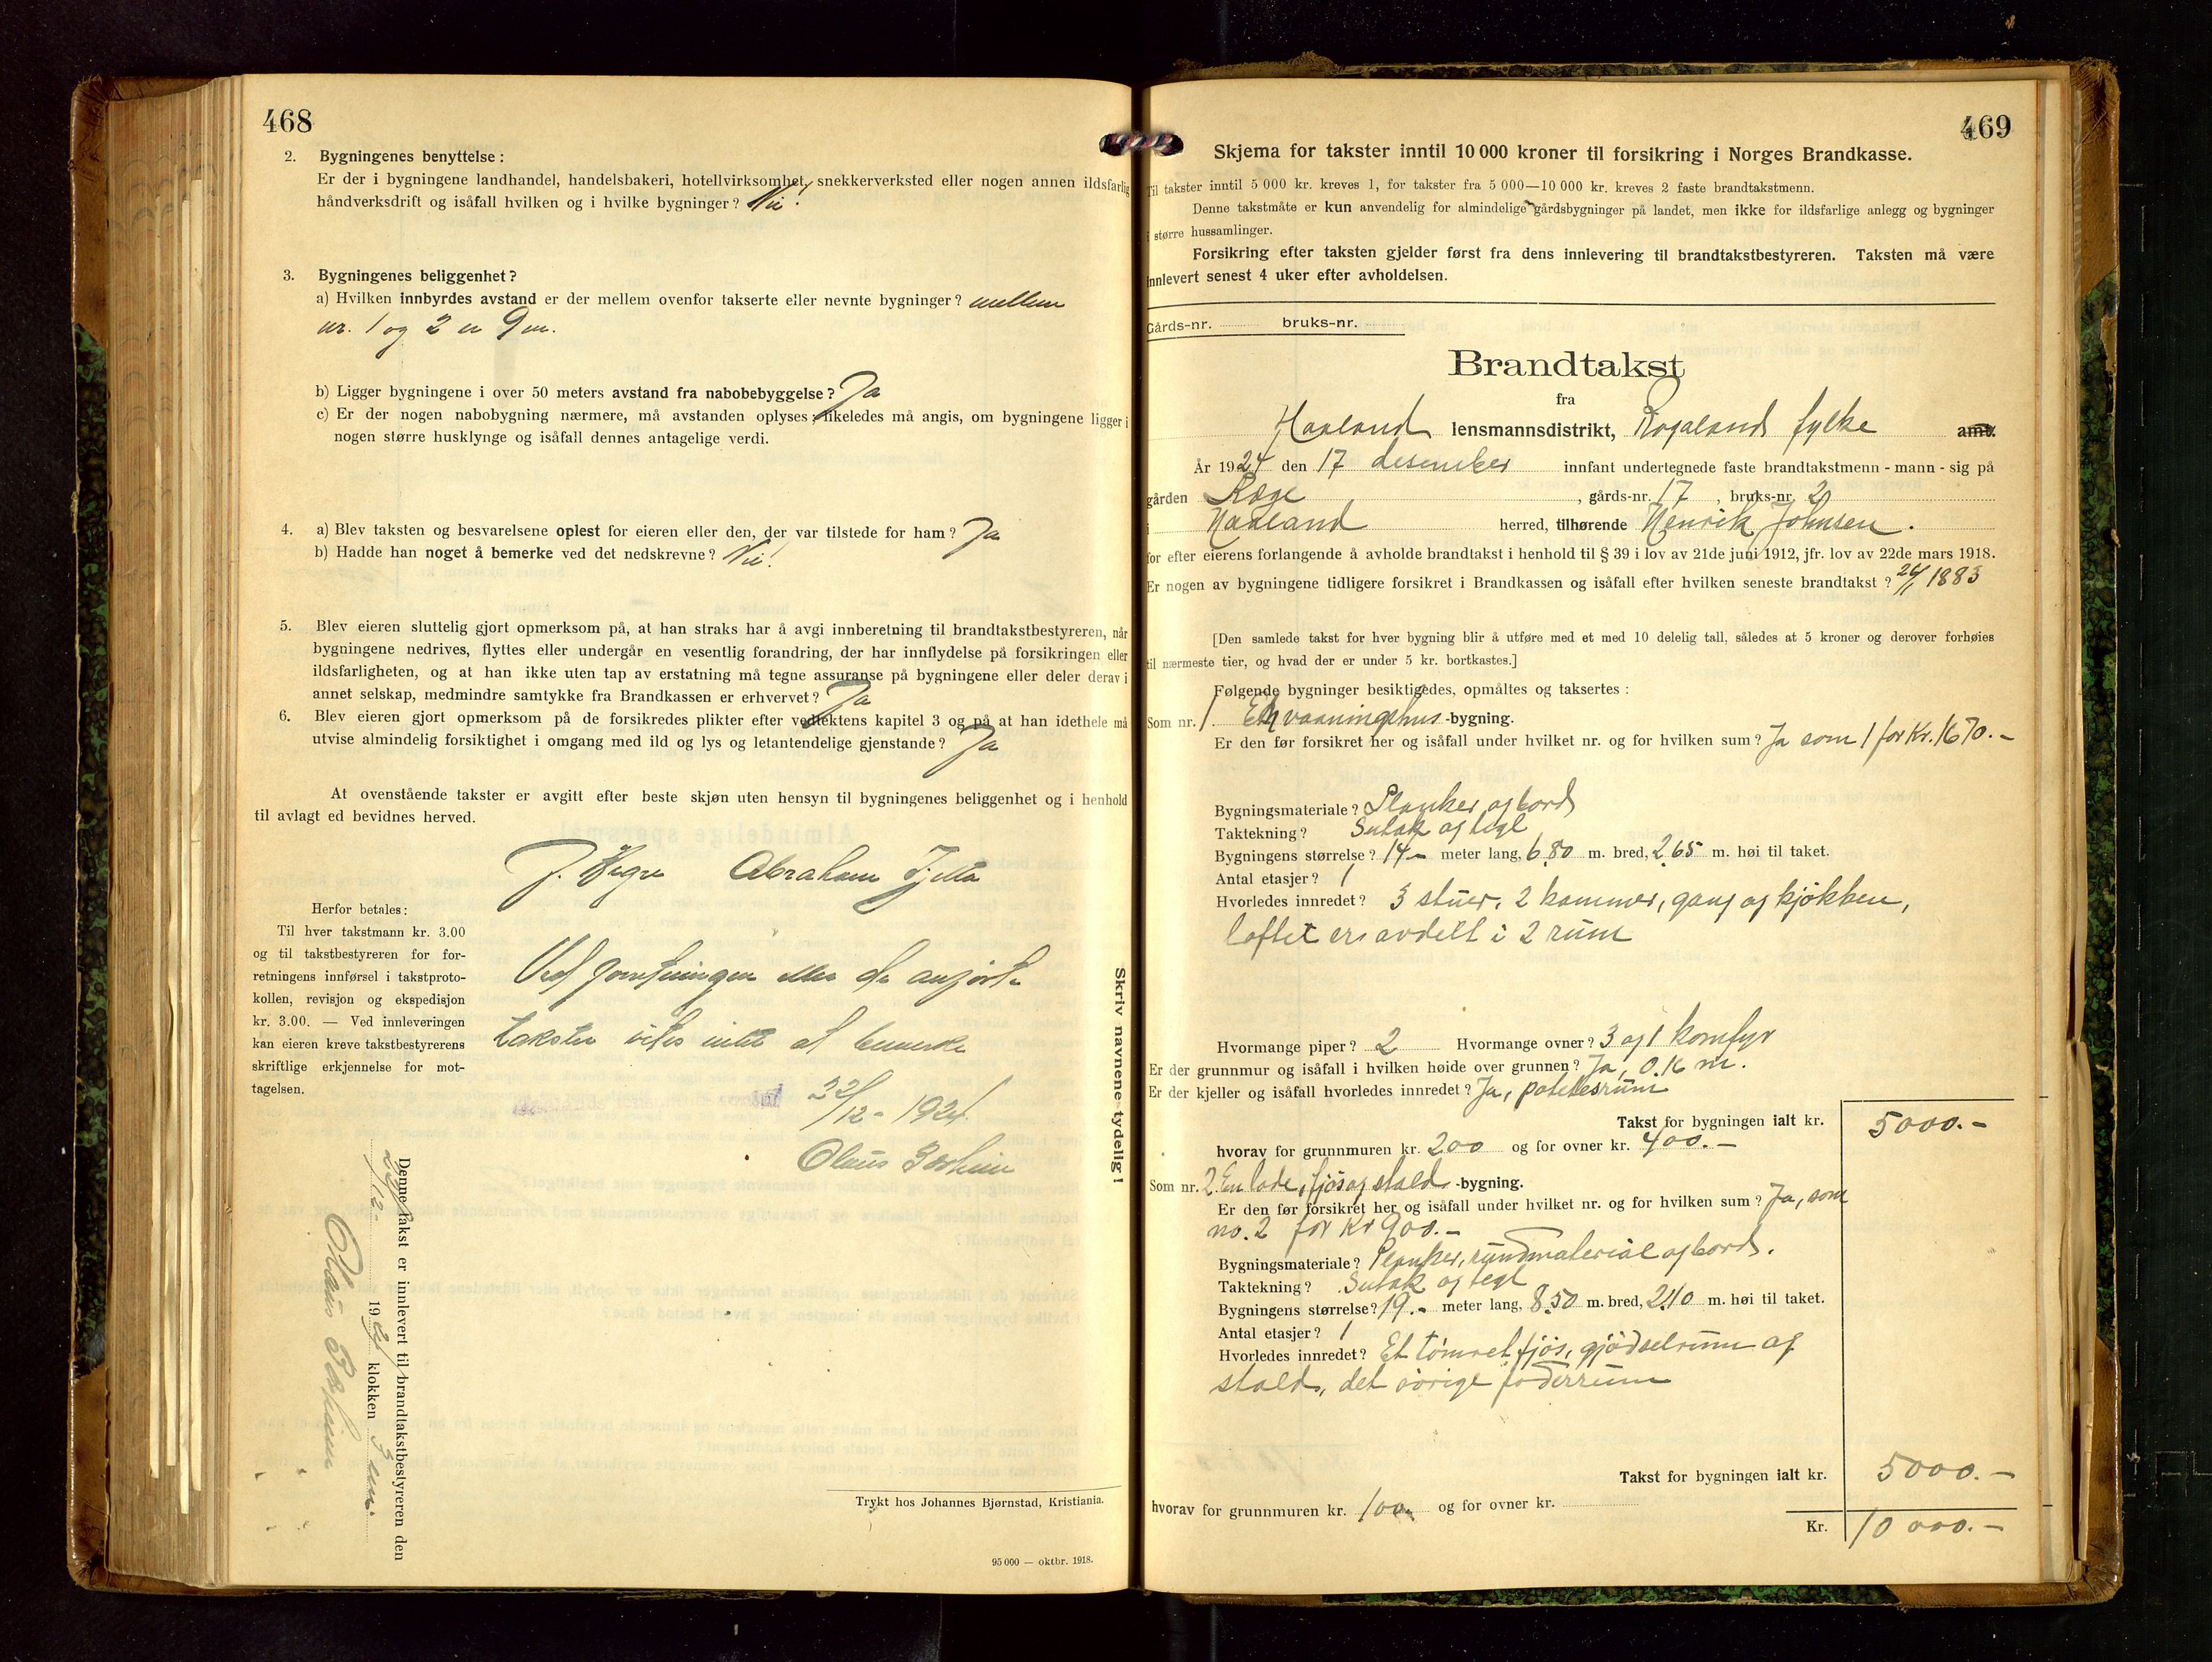 468
2. Bygningenes benyttelse:
Er der i bygningene landhandel, handelsbakeri, hotellvirksomhet, snekkerverksted eller nogen annen ildsfarlig
håndverksdrift og isåfall hvilken og i hvilke bygninger? Nei!
3. Bygningenes beliggenhet?
a) Hvilken innbyrdes avstand er der mellem ovenfor takserte eller nevnte bygninger? mellem
nr. 1 og 2 er 9 m.
b) Ligger bygningene i over 50 meters avstand fra nabobebyggelse? Ja
c) Er der nogen nabobygning nærmere, må avstanden oplyses; likeledes må angis, om bygningene ligger i
nogen større husklynge og isåfall dennes antagelige verdi.
4. a) Blev taksten og besvarelsene oplest for eieren eller den, der var tilstede for ham? Ja
b) Hadde han noget å bemerke ved det nedskrevne? Nei!
5. Blev eieren sluttelig gjort opmerksom på, at han straks har å avgi innberetning til brandtakstbestyreren, når
bygningene nedrives, flyttes eller undergår en vesentlig forandring, der har innflydelse på forsikringen eller
ildsfarligheten, og at han ikke uten tap av erstatning må tegne assuranse på bygningene eller deler derav i
annet selskap, medmindre samtykke fra Brandkassen er erhvervet? Ja
6. Blev eieren gjort opmerksom på de forsikredes plikter efter vedtektens kapitel 3 og på at han idethele må
utvise almindelig forsiktighet i omgang med ild og lys og letantendelige gjenstande? Ja
At ovenstående takster er avgitt efter beste skjøn uten hensyn til bygningenes beliggenhet og i henhold
til avlagt ed bevidnes herved.
J. Hegre Abraham Tjelta
Herfor betales:
Til hver takstmann kr. 3.00
og til takstbestyreren for for-
retningens innførsel i takstproto-
kollen, revisjon og ekspedisjon
kr. 3.00. — Ved innleveringen
kan eieren kreve takstbestyrerens
skriftlige erkjennelse for mot-
tagelsen.
Ved forretningen eller de anførte
takster vites intet at bemerke
22/12 - 1924
Olaus
Skriv navnene tydelig!
Denne takst er innlevert til brandtakstbestyreren den
22/12 - 1924 klokken 3 em.
Olaus
Trykt hos Johannes Bjørnstad, Kristiania.
95 000 — oktbr. 1918.
469
Skjema for takster inntil 10 000 kroner til forsikring i Norges Brandkasse.
Til takster inntil 5 000 kr. kreves 1, for takster fra 5 000—10 000 kr. kreves 2 faste brandtakstmenn.
Denne takstmåte er kun anvendelig for almindelige gårdsbygninger på landet, men ikke for ildsfarlige anlegg og bygninger
i større hussamlinger.
Forsikring efter taksten gjelder først fra dens innlevering til brandtakstbestyreren. Taksten må være
innlevert senest 4 uker efter avholdelsen.
Gårds-nr. bruks-nr.
Brandtakst
fra
Haaland lensmannsdistrikt, Rogaland fylke amt.
År 1924 den 17 desember innfant undertegnede faste brandtakstmenn - mann - sig på
gården Ræge, gårds-nr. 17, bruks-nr. 2
i Haaland herred, tilhørende Henrik Johnsen.
for efter eierens forlangende å avholde brandtakst i henhold til § 39 i lov av 21de juni 1912, jfr. lov av 22de mars 1918.
Er nogen av bygningene tidligere forsikret i Brandkassen og isåfall efter hvilken seneste brandtakst? 1883
[Den samlede takst for hver bygning blir å utføre med et med 10 delelig tall, således at 5 kroner og derover forhøies
til nærmeste tier, og hvad der er under 5 kr. bortkastes.]
Følgende bygninger besiktigedes, opmåltes og taksertes:
Som nr. 1. Et vaaningshus-bygning.
Er den før forsikret her og isåfall under hvilket nr. og for hvilken sum? Ja som 1 for Kr. 1670.-
Bygningsmateriale? Planker og bord
Taktekning? Sutak og tegl
Bygningens størrelse? 14 - meter lang, 6.80 m. bred, 2.65 m. høi til taket.
Antal etasjer? 1
Hvorledes innredet? 3 stuer, 2 kammer, gang og kjøkken,
loftet er avdelt i 2 rum
Hvormange piper? 2 Hvormange ovner? 3 og 1 komfyr
Er der grunnmur og isåfall i hvilken høide over grunnen? Ja, 0.16 m.
Er der kjeller og isåfall hvorledes innredet? Ja, potetesrum
Takst for bygningen ialt kr. 5000.-
hvorav for grunnmuren kr. 200 og for ovner kr. 400.-
Som nr. 2. En lade, fjøs og stald -bygning.
Er den før forsikret her og isåfall under hvilket nr. og for hvilken sum? Ja, som
no. 2 for Kr 900.-
Bygningsmateriale? Planker, rundmaterial og bord.
Taktekning? Sutak og tegl
Bygningens størrelse? 19.- meter lang, 8.50 m. bred, 2.10 m. høi til taket.
Antal etasjer? 1
Hvorledes innredet? Et tømret fjøs, gjødselrum og
stald, det øvrige foderrum
Takst for bygningen ialt kr. 5000.-
hvorav for grunnmuren kr. 100 og for ovner kr.
Kr. 10 000.-